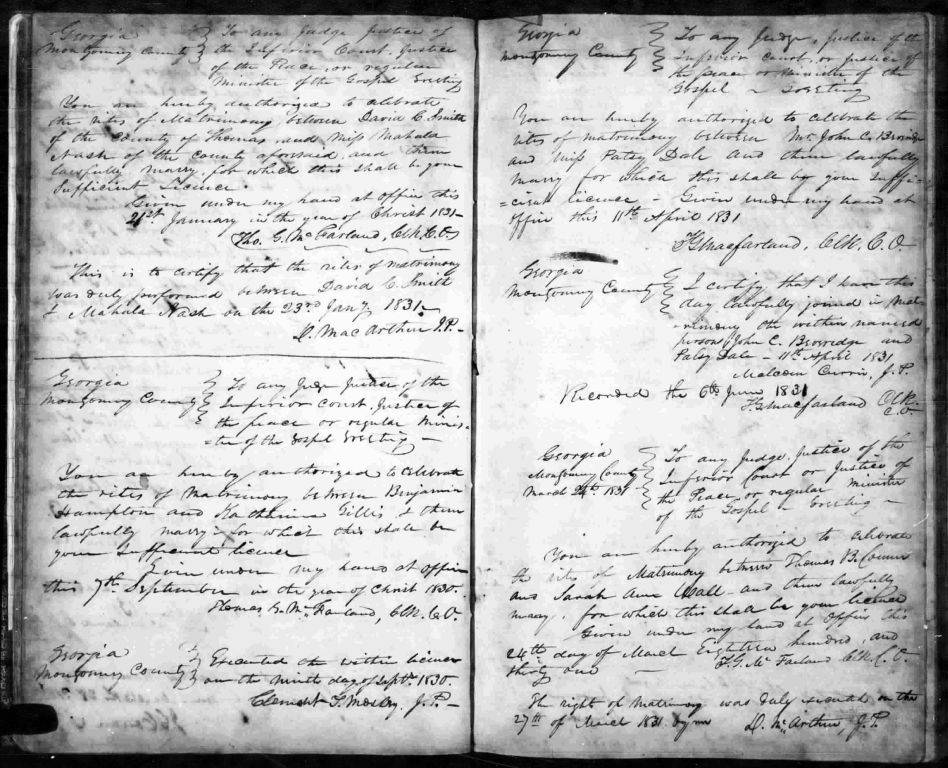 Georgia } To any Judge Justice of
Montgomery County } the Inferior Court, Justice
of the Peace, or regular
Minister of the Gospel Greeting
You are hereby authorized to celebrate
the rites of Matrimony between David C. Smith
of the County of Thomas and Miss Mahala
Nash of the County aforesaid and them
lawfully marry, for which this shall be your
Sufficient Licence.
Given under my hand at office this
21st January in the year of Christ 1831-
Tho. G. McFarland, Clk. C.O.
This is to certify that the rites of matrimony
was duly performed between David C. Smith
& Mahala Nash on the 23rd Jany 1831.
D. MacArthur J.P.
Georgia } To any Judge Justice of the
Montgomery County } Inferior Court, Justice of
the peace or regular Minis-
=ter of the Gospel Greeting -
You are hereby authorized to celebrate
the rites of Matrimony between Benjamin
Hampton and Katharine Gillis & them
lawfully marry for which this shall be
your sufficient licence
Given under my hand at office
this 7th September in the year of Christ 1830.
Thomas G. McFarland, Clk. C.O.
Georgia } Executed the within licence
Montgomery County } on the Ninth day of Sept. 1830.
Clement T. Mosely. J.P. -
Georgia } To any Judge, Justice of the
Montgomery County } Inferior Court, or Justice of
the peace or Minister of the
Gospel - Greeting
You are hereby authorized to celebrate the
rites of matrimony between Mr. John C.
and Miss Patsy Dale and them lawfully
marry for which this shall by your suffi-
=cient license - Given under my hand at
office this 11th April 1831
T G Macfarland, Clk. C.O.
Georgia
Montgomery County } I certify that I have this
day lawfully joined in Mat-
rimony the within named
persons John C. and
Patsy Dale - 11th April 1831
Malcom Currie, J.P.
Recorded the 6th June 1831
T. G Macfarland Clk.
C.O.
Georgia } To any Judge, Justice of the
Montgomery County } Inferior Court or Justice of
March 24th 1831 } the Peace or regular Minister
of the Gospel - Greeting -
You are hereby authorized to celebrate
the rites of Matrimony between Thomas B.
and Sarah Ann Wall - and them lawfully
marry, for which this shall be your licence
Given under my hand at office this
24th day of March Eighteen hundred and
thirty one - T. G. McFarland Clk. C.O.
The right of Matrimony was duly on the
27th of March 1831 by me D. McArthur, J.P.